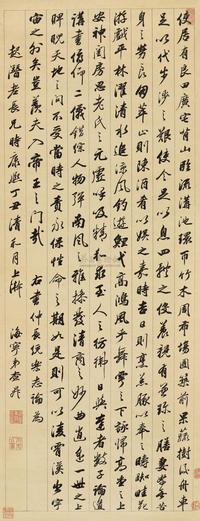 使居有良田廣宅背山臨流溝池環帀竹木周布場圃築前果園樹後舟車
足以代步涉之難使令足以息四體之役養親有兼珍之膳妻孥無苦
身之勞良朋萃止則陳酒肴以娛之嘉時吉日則烹羔豚以奉之躊躇畦苑
游戲平林濯清水追涼風釣遊鯉弋高鴻風乎舞雩之下詠歸高堂之上
安神閨房思老氏之元虛呼吸精和求至人之彷彿日與達者數子論道
講書俯仰二儀錯綜人物彈南風之雅操發清商之妙曲逍遙一世之上
睥睨天地之間不受當時之責永保性命之期如是則可以凌霄漢出宇
宙之外矣豈羨夫入帝王之門哉 右書仲長統樂志論為
老長兄時康熙丁丑清和月上澣
海寧弟查昇